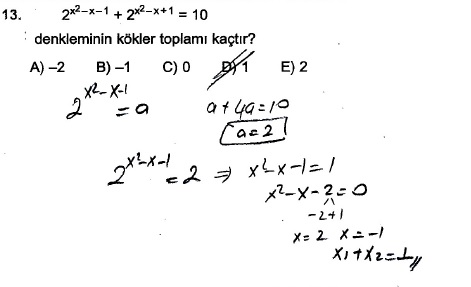 13. 2^{x²–x–1} + 2^{x²–x+1} = 10
denkleminin kökler toplamı kaçtır?
A) –2 B) –1 C) 0 D) 1 E) 2
2^{x²-x-1} = a a + 4a = 10
a = 2
2^{x²-x-1} = 2 ⇒ x²-x-1 = 1
x²-x-2 = 0
-2+1
x = 2 x = -1
x₁+x₂ = 1,,